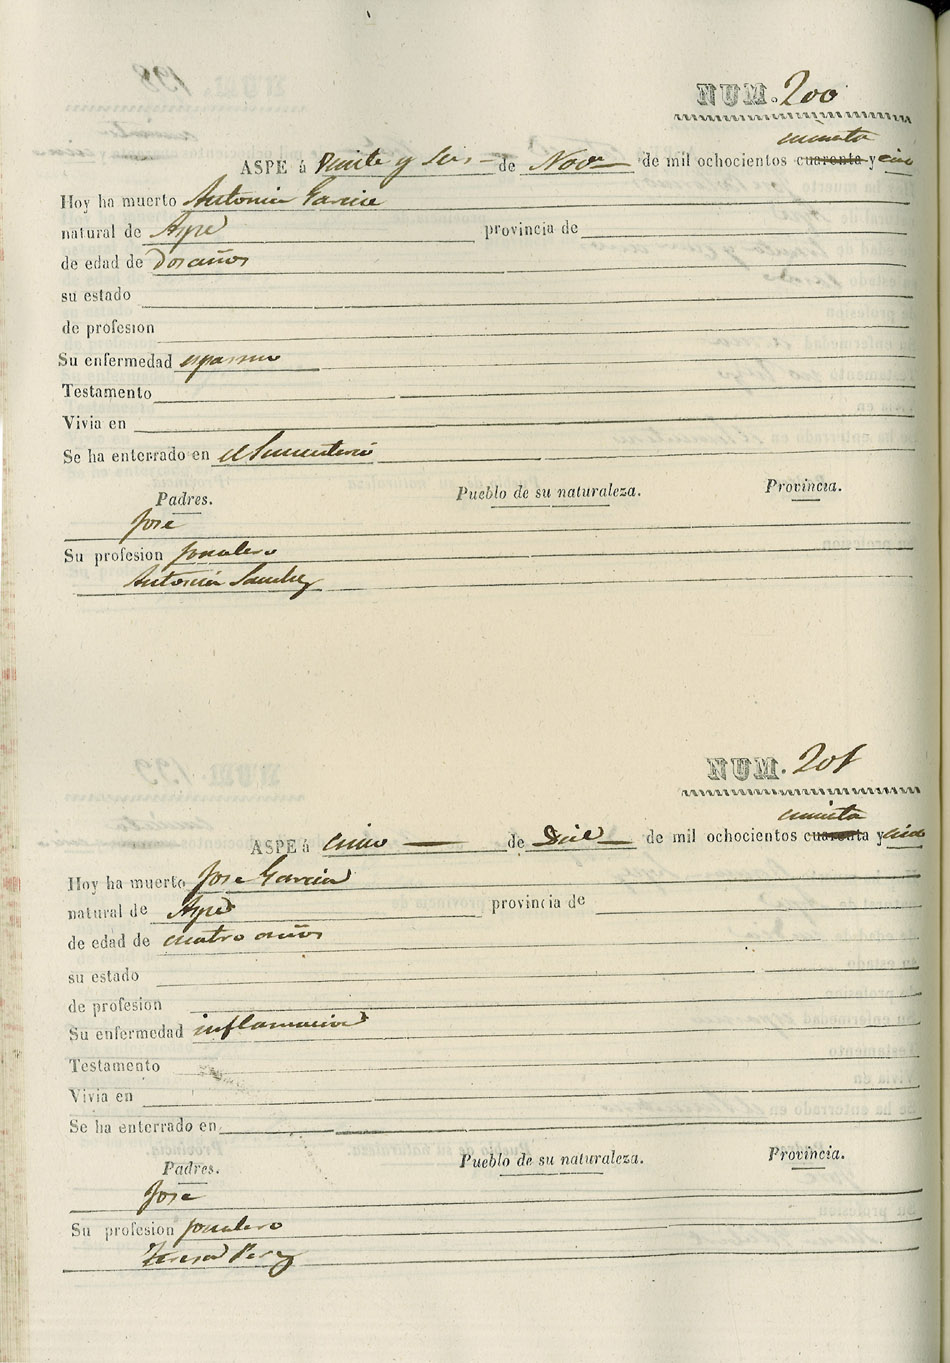 NUM. 200
cincuenta
ASPE á Veinte y Seis de Nove de mil ochocientos cuarenta y cinco
Hoy ha muerto Antonia Garcia
natural de Aspe provincia de
de edad de dos años
su estado
de profesion
Su enfermedad espasmo
Testamento
Vivia en
Se ha enterrado en el Sementerio
Padres. Pueblo de su naturaleza. Provincia.
Jose
Su profesion jornalero
Antonia Sanchez
NUM. 201
cincuenta
ASPE á cinco de Dice de mil ochocientos cuarenta y cinco
Hoy ha muerto Jose Garcia
natural de Aspe provincia de
de edad de cuatro años
su estado
de profesion
Su enfermedad inflamacion
Testamento
Vivia en
Se ha enterrado en
Padres. Pueblo de su naturaleza. Provincia.
Jose
Su profesion jornalero
Teresa Perez